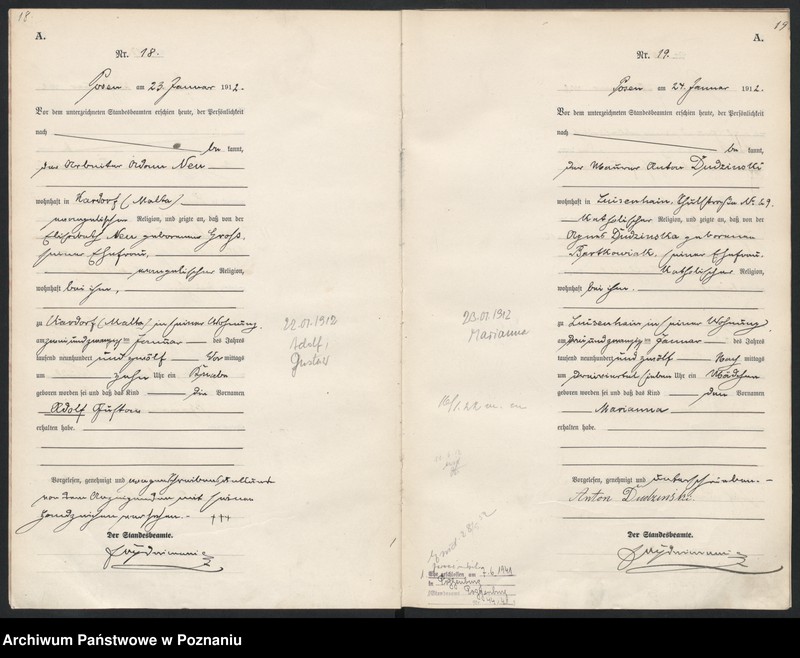 18
A.
Nr. 18.
Posen am 23. Januar 1912.
Vor dem unterzeichneten Standesbeamten erschien heute, der Persönlichkeit
nach
be kannt,
der Arbeiter Adam Neu
wohnhaft in (Malta)
evangelischer Religion, und zeigte an, daß von der
Elisabeth Neu geborenen Groß,
seiner Ehefrau,
evangelischer Religion,
wohnhaft bei ihm,
zu (Malta) in seiner Wohnung
am zweiundzwanzig ten Januar des Jahres
tausend neunhundert und zwölf Vor mittags
um zehn Uhr ein Knabe
geboren worden sei und daß das Kind die Vornamen
Adolf Gustav
erhalten habe.
Vorgelesen, genehmigt und wegen Schreibens
von dem Anzeigenden mit seinem
Handzeichen versehen. - +++
Der Standesbeamte.
22.01.1912
Adolf,
Gustav
19
A.
Nr. 19.
Posen am 24. Januar 1912.
Vor dem unterzeichneten Standesbeamten erschien heute, der Persönlichkeit
nach
be kannt,
der Maurer Anton Dudzinski
wohnhaft in Luisenhain, Schulstraße Nr. 29.
katholischer Religion, und zeigte an, daß von der
Agnes Dudzinska geborenen
Bartkowiak, seiner Ehefrau
katholischer Religion,
wohnhaft bei ihm.
zu Luisenhain in seiner Wohnung
am dreiundzwanzig ten Januar des Jahres
tausend neunhundert und zwölf Nach mittags
um dreiviertel sieben Uhr ein Mädchen
geboren worden sei und daß das Kind den Vornamen
Marianna
erhalten habe.
Vorgelesen, genehmigt und unterschrieben. -
Anton Dudzinski
Der Standesbeamte.
23.01.1912
Marianna
am .6.1941
in
Archiwum Państwowe w Poznaniu